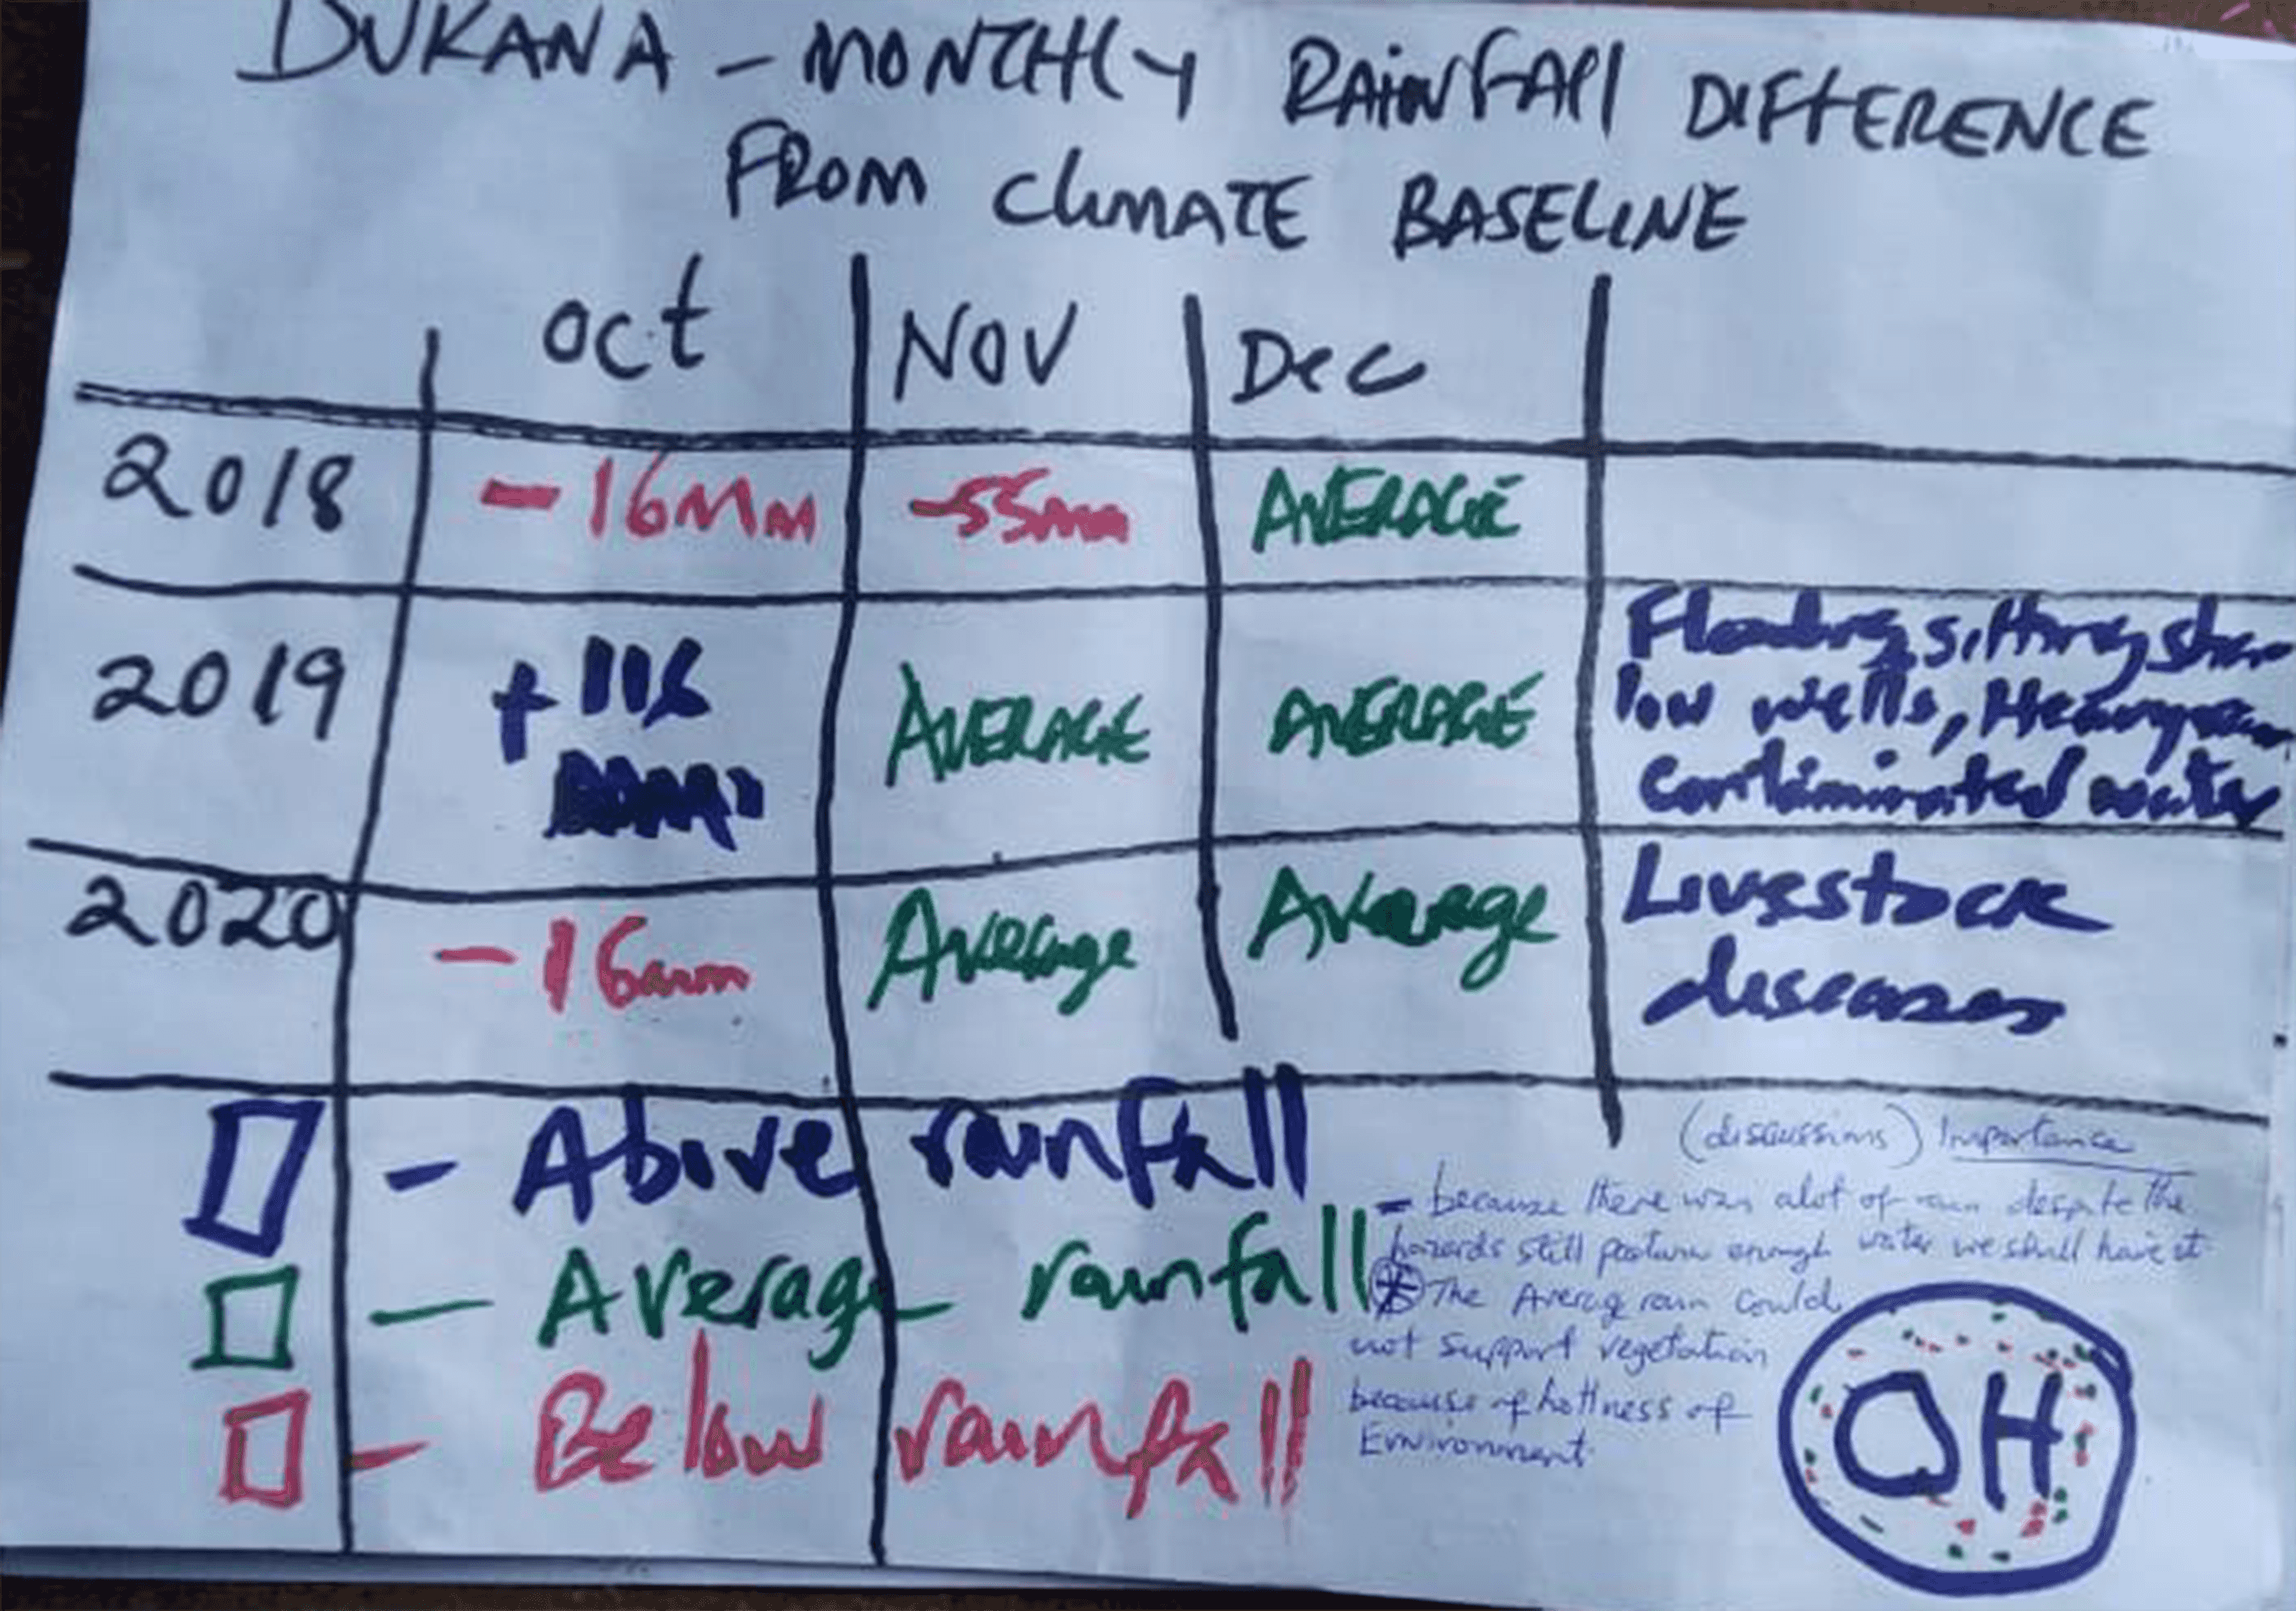 DUKANA - MONTHLY RAINFALL DIFFERENCE
FROM CLIMATE BASELINE
Oct NOV Dec
2018 -16Mm -55mm AVERAGE
2019 +116 AVERAGE AVERAGE
Flooding, sitting shaz
low wells, Heavy
contaminated water
2020 -16mm Average Average Livestock
diseases
- Above rainfall
- Average rainfall
- Below rainfall
(discussions) Importance
- because there was alot of rain despite the
hazards still pasture enough water we shall have it
* The Average rain could
not support vegetation
because of hottness of
Environment
OH